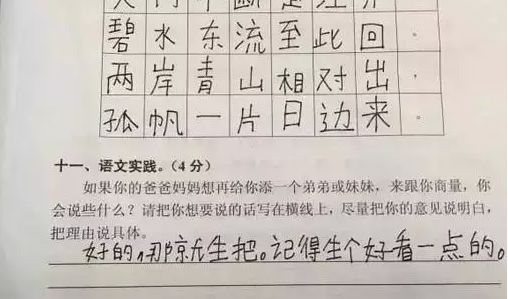 碧水东流至此回。
两岸青山相对出。
孤帆一片日边来。
十一、语文实践。（4分）
如果你的爸爸妈妈想再给你添一个弟弟或妹妹，来跟你商量，你
会说些什么？请把你想要说的话写在横线上，尽量把你的意见说明白，
把理由说具体。
好的，那就生把。记得生个好看一点的。